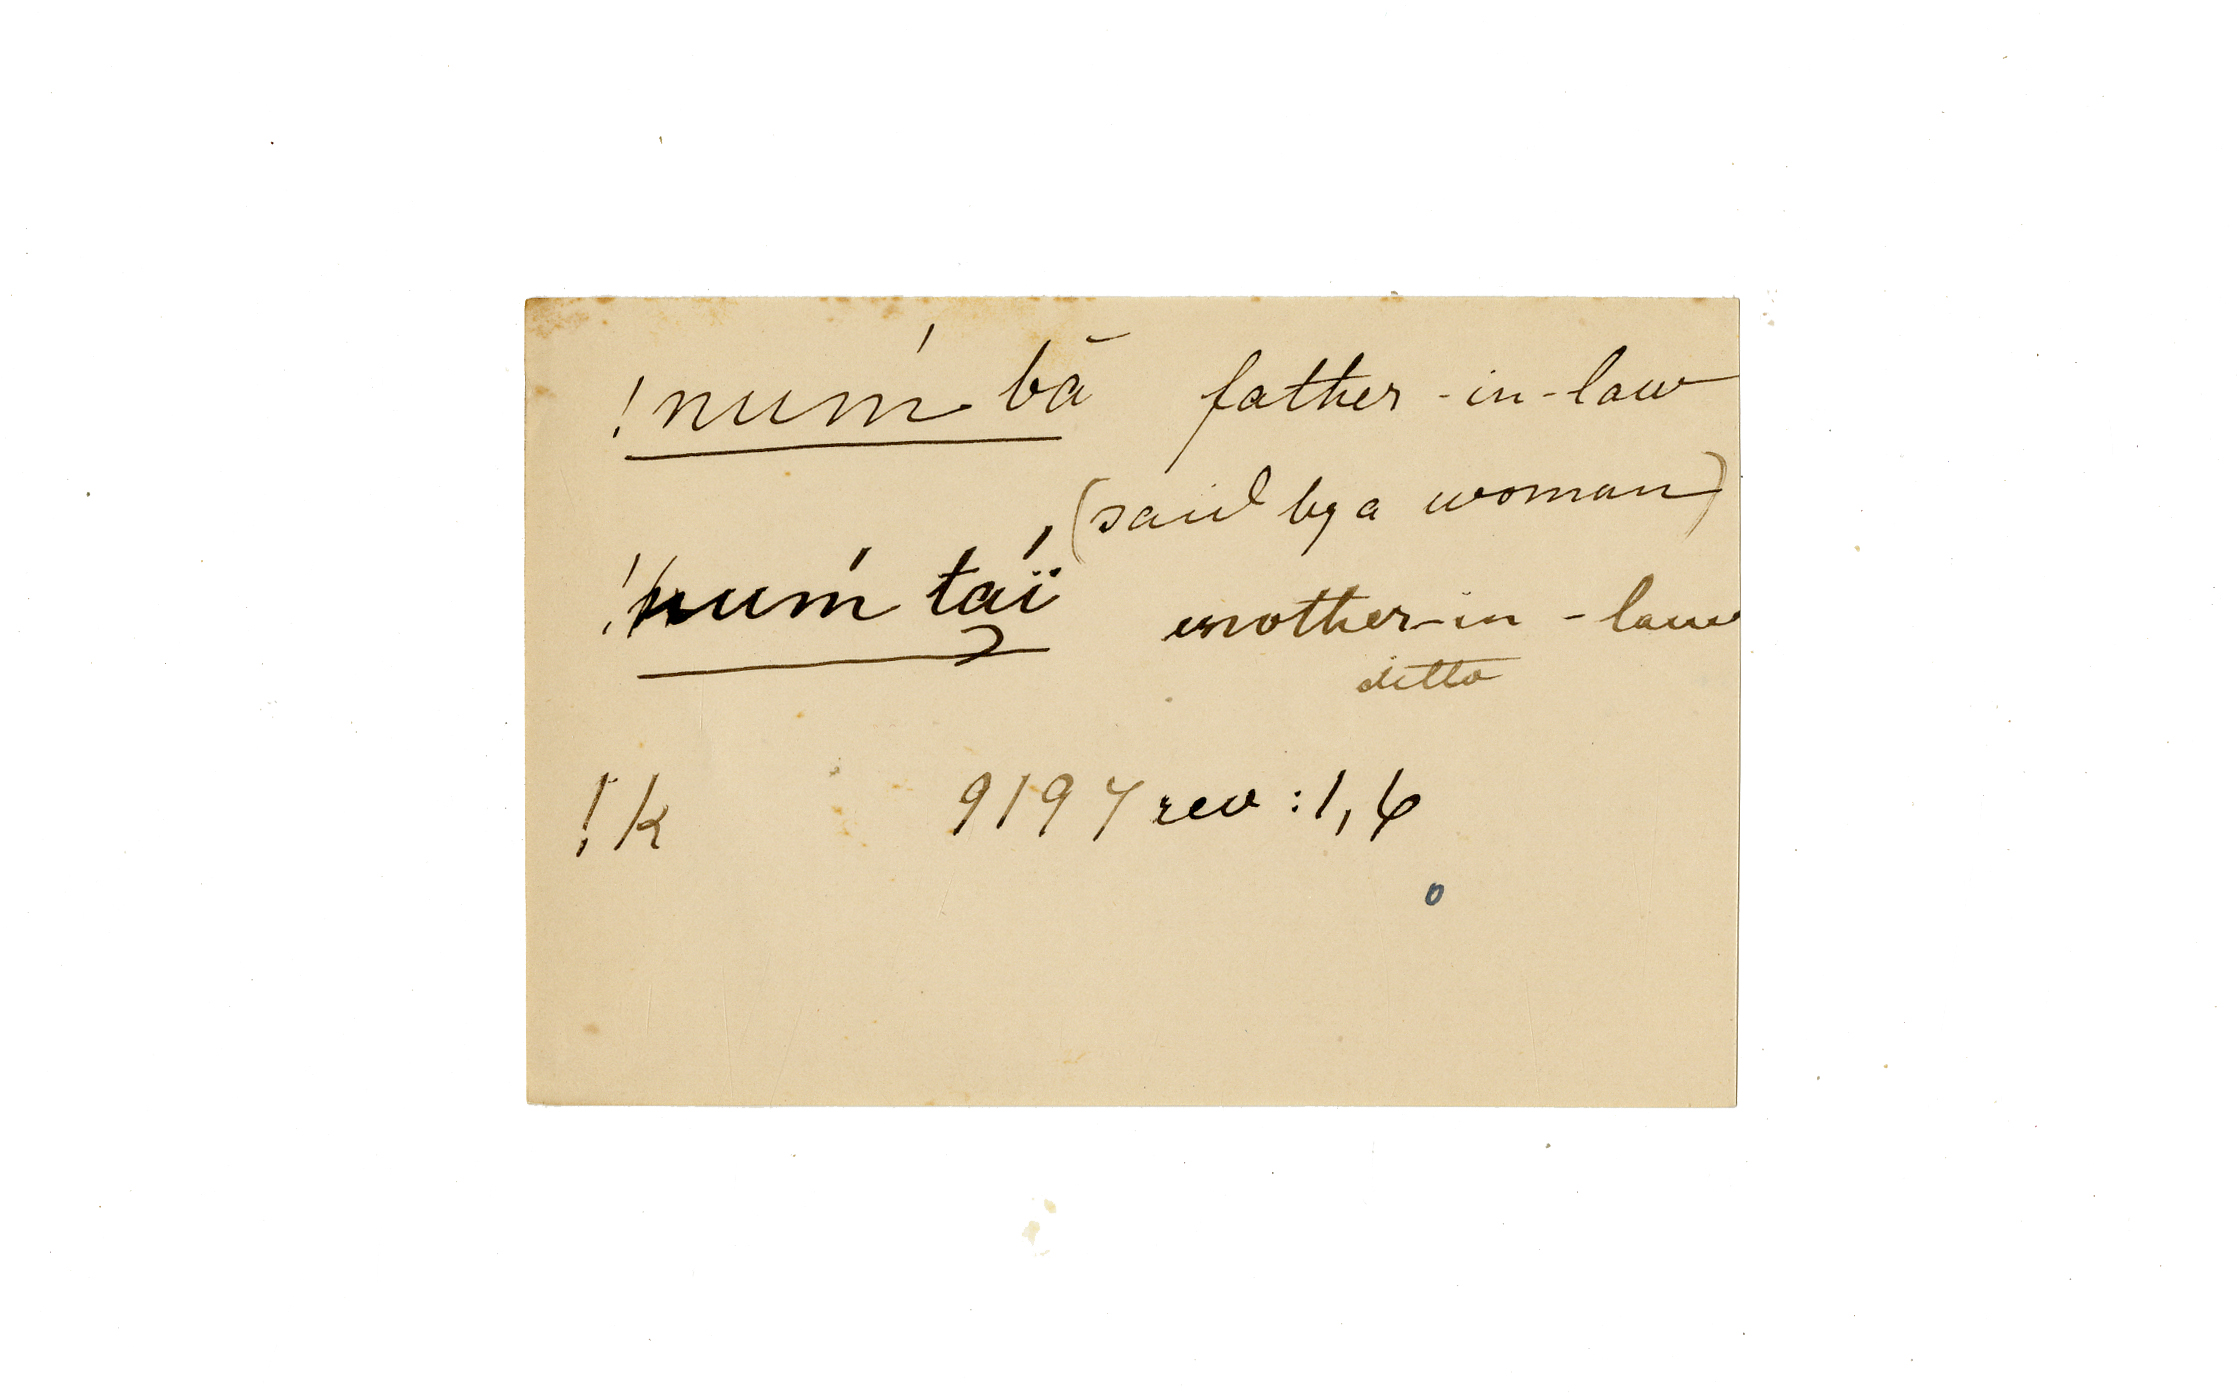 !nuḿ bā father-in-law
(said by a woman)
!nuḿ taḯ mother-in-law
ditto
!k 9197 rev: 1, 6
o